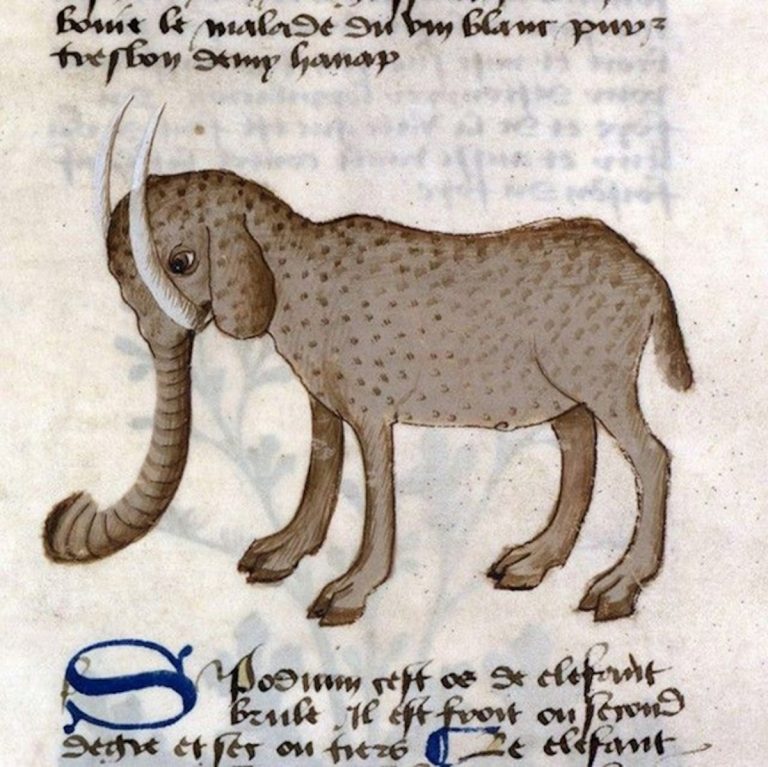 boiue le malade du vin blanc puy⸗
tresbon demy hanap
Spodium cest os de elefant
brule Il est froit ou second
degre et sec ou tiers Le elefant